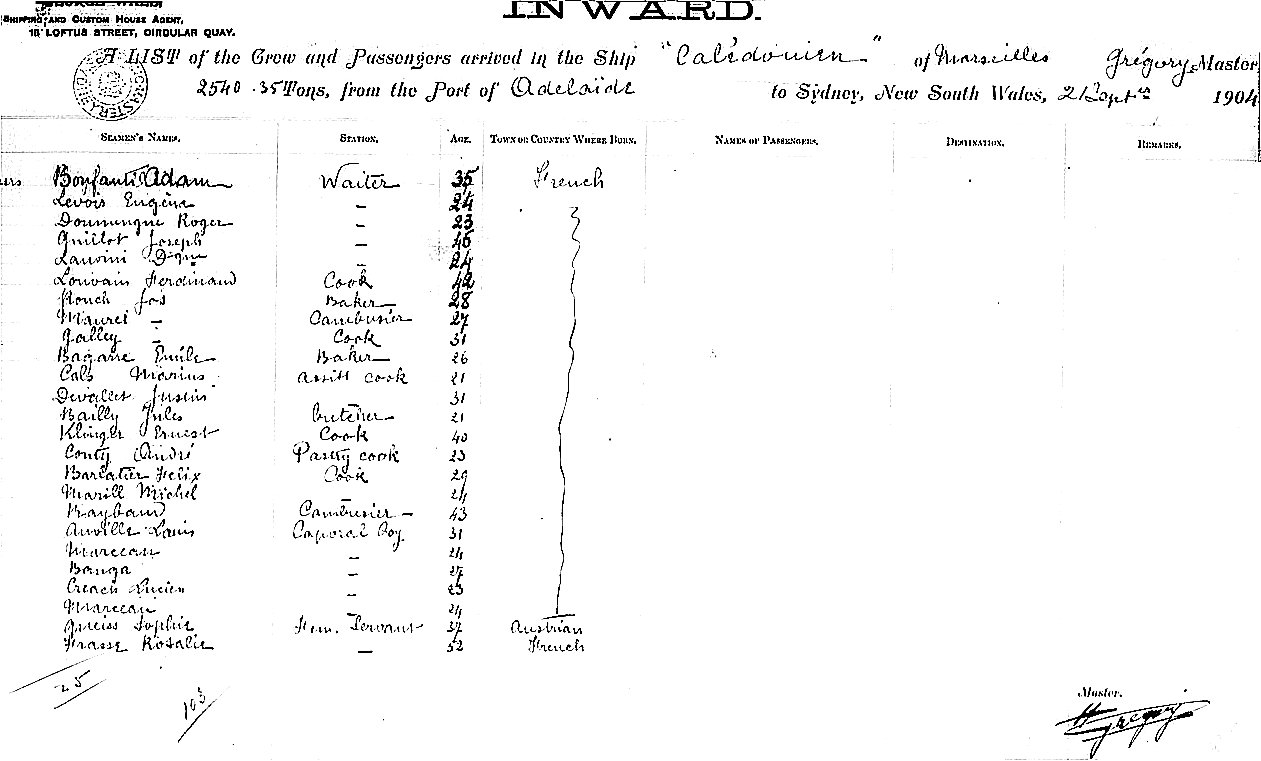 INWARD.
SHIPPING AND CUSTOM HOUSE AGENT,
18 LOFTUS STREET, CIRCULAR QUAY.
A LIST of the Crew and Passengers arrived in the Ship "Calédonien" of Marseilles Grégory, Master
2540.35 Tons, from the Port of Adelaide to Sydney, New South Wales, 2 Septre 1904
SEAMEN'S NAMES. STATION. AGE. TOWN OR COUNTRY WHERE BORN. NAMES OF PASSENGERS. DESTINATION. REMARKS.
Bonfanti Adam Waiter 35 French
Levois Eugène — 24
Dommengue Roger — 23
Guillot Joseph — 45
— 24
Louvain Ferdinand Cook 42
Rouch Jos Baker 28
Mauret — Cambusier 27
Galley — Cook 31
Bagarre Emile Baker 26
Cals Marius Assitt cook 21
Devallet Justin 31
Bailly Jules Butcher 21
Klinger Ernest Cook 40
Conty André Pastry cook 23
Barlatier Felix Cook 29
Marill Michel — 24
Raybaud Cambusier 43
Anville Louis Caporal Boy 31
Marceau — 24
Banga — 27
Creach Lucien — 23
Marceau — 24
Greiss Sophie Fem. Servant 37 Austrian
Frasse Rosalie — 52 French
25
103
Master.
H Grégory